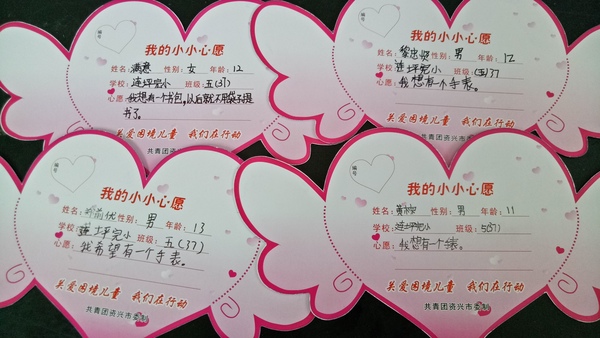 编号
我的小小心愿
姓名：满意 性别：女 年龄：12
学校：连坪完小 班级：五(37)
心愿：我想有一个书包，以后就不用袋子提
书了。
关爱困境儿童 我们在行动
共青团资兴市委制
编号
我的小小心愿
姓名：黎忠贤 性别：男 年龄：12
学校：连坪完小 班级：(五)37
心愿：我想有个手表。
关爱困境儿童 我们在行动
共青团资兴市委制
编号
我的小小心愿
姓名： 性别：男 年龄：13
学校：连坪完小 班级：五(37)
心愿：我希望有一个手表。
关爱困境儿童 我们在行动
共青团资兴市委制
编号
我的小小心愿
姓名：黄 性别：男 年龄：11
学校：连坪完小 班级：
心愿：我想有一个表。
关爱困境儿童 我们在行动
共青团资兴市委制